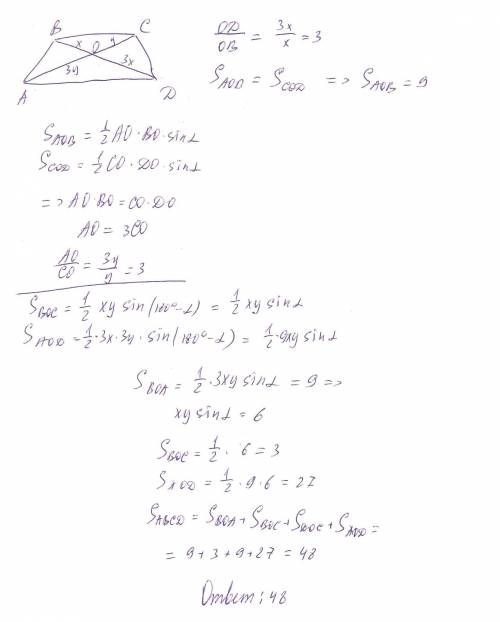 B C
x O y
3y 3x
A D
OD/OB = 3x/x = 3
S_AOD = S_COD => S_AOB = 9
S_AOB = 1/2 AO · BO · sin α
S_COD = 1/2 CO · DO · sin α
=> AO · BO = CO · DO
AO = 3CO
AO/CO = 3y/y = 3
S_BOC = 1/2 xy sin(180° - α) = 1/2 xy sin α
S_AOD = 1/2 · 3x · 3y · sin(180° - α) = 1/2 · 9xy sin α
S_BOA = 1/2 · 3xy sin α = 9 =>
xy sin α = 6
S_BOC = 1/2 · 6 = 3
S_AOD = 1/2 · 9 · 6 = 27
S_ABCD = S_BOA + S_BOC + S_DOC + S_AOD =
= 9 + 3 + 9 + 27 = 48
Ответ: 48